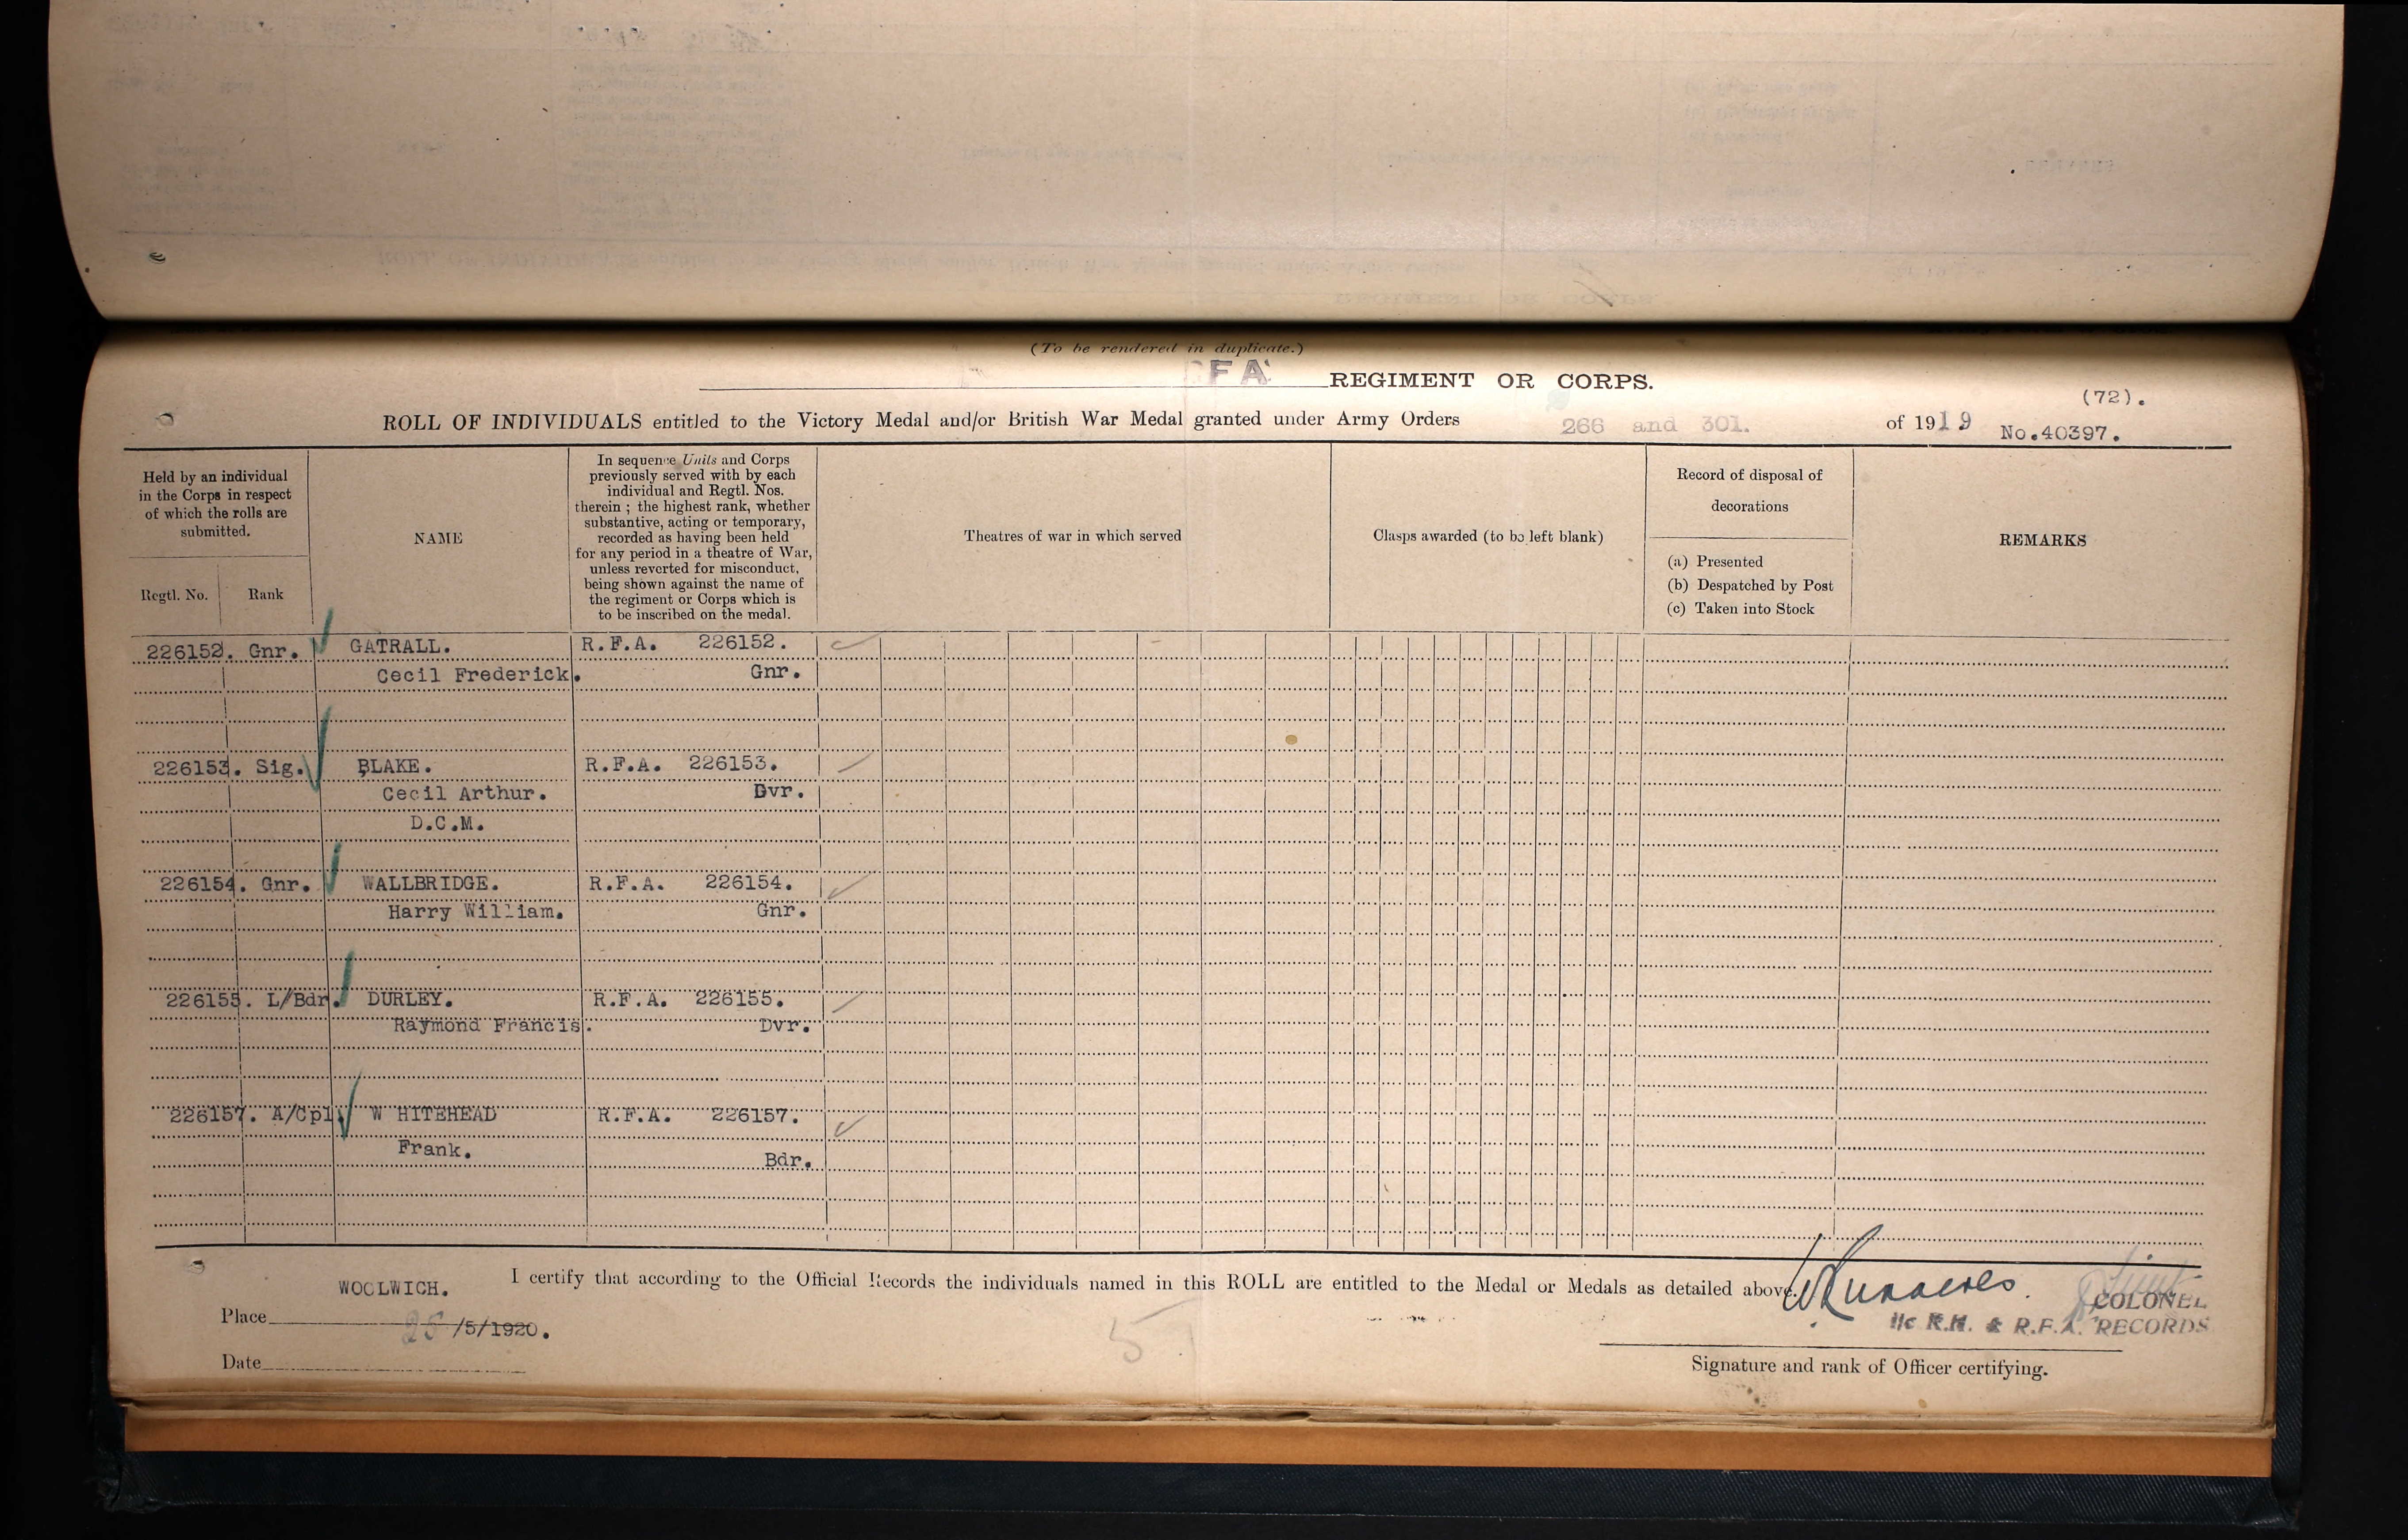 (To be rendered in duplicate.)
FA REGIMENT OR CORPS.
(72).
ROLL OF INDIVIDUALS entitled to the Victory Medal and/or British War Medal granted under Army Orders 266 and 301. of 1919 No.40397.
Held by an individual
in the Corps in respect
of which the rolls are
submitted.
Regtl. No. Rank
NAME
In sequence Units and Corps
previously served with by each
individual and Regtl. Nos.
therein ; the highest rank, whether
substantive, acting or temporary,
recorded as having been held
for any period in a theatre of War,
unless reverted for misconduct,
being shown against the name of
the regiment or Corps which is
to be inscribed on the medal.
Theatres of war in which served
Clasps awarded (to be left blank)
Record of disposal of
decorations
(a) Presented
(b) Despatched by Post
(c) Taken into Stock
REMARKS
226152. Gnr. GATRALL. R.F.A. 226152.
Cecil Frederick. Gnr.
226153. Sig. BLAKE. R.F.A. 226153.
Cecil Arthur. Dvr.
D.C.M.
226154. Gnr. WALLBRIDGE. R.F.A. 226154.
Harry William. Gnr.
226155. L/Bdr. DURLEY. R.F.A. 226155.
Raymond Francis. Dvr.
226157. A/Cpl. W HITEHEAD R.F.A. 226157.
Frank. Bdr.
I certify that according to the Official Records the individuals named in this ROLL are entitled to the Medal or Medals as detailed above.
WOOLWICH.
Place
25/5/1920.
Date
5
COLONEL
I/c R.H. & R.F.A. RECORDS
Signature and rank of Officer certifying.